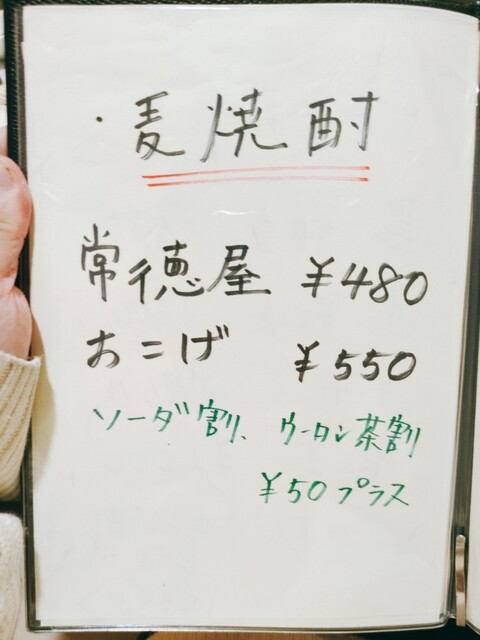 ・麦焼酎
常徳屋 ¥480
おこげ ¥550
ソーダ割、ウーロン茶割
¥50プラス